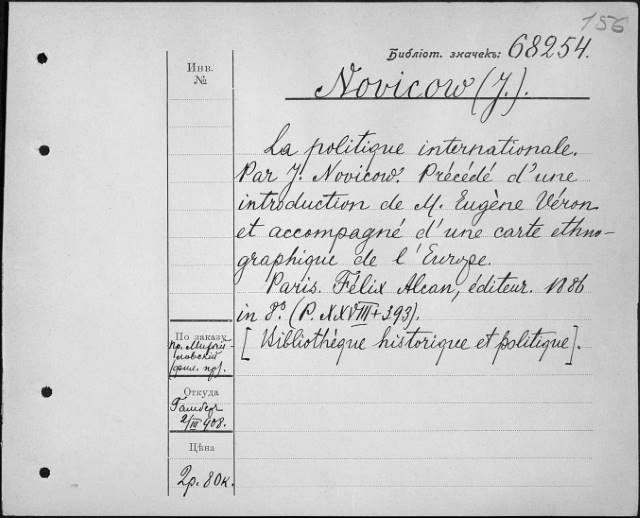 156
Библіот. значекъ: 68254.
Инв.
№
Novicow (J.).
La politique internationale.
Par J. Novicow. Précédé d'une
introduction de M. Eugène Véron
et accompagné d'une carte ethno-
graphique de l'Europe.
Paris. Félix Alcan, éditeur. 1886
in 8º. (P. XXVIII+393).
[Bibliothèque historique et politique].
По заказу
пр.
Откуда
2/III 908.
Цѣна
2р. 80к.